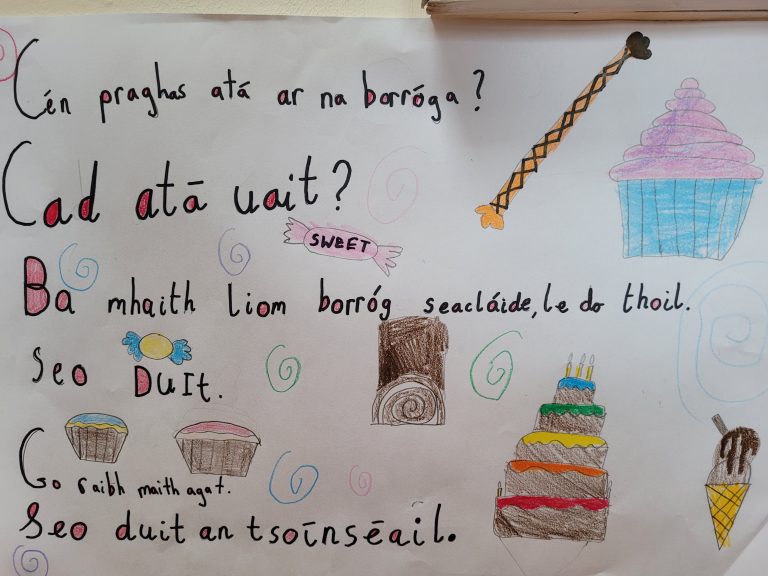 Cén praghas atá ar na borróga?
Cad atá uait?
SWEET
Ba mhaith liom borróg seacláide, le do thoil.
Seo Duit.
Go raibh maith agat.
Seo duit an tsoīnsēail.